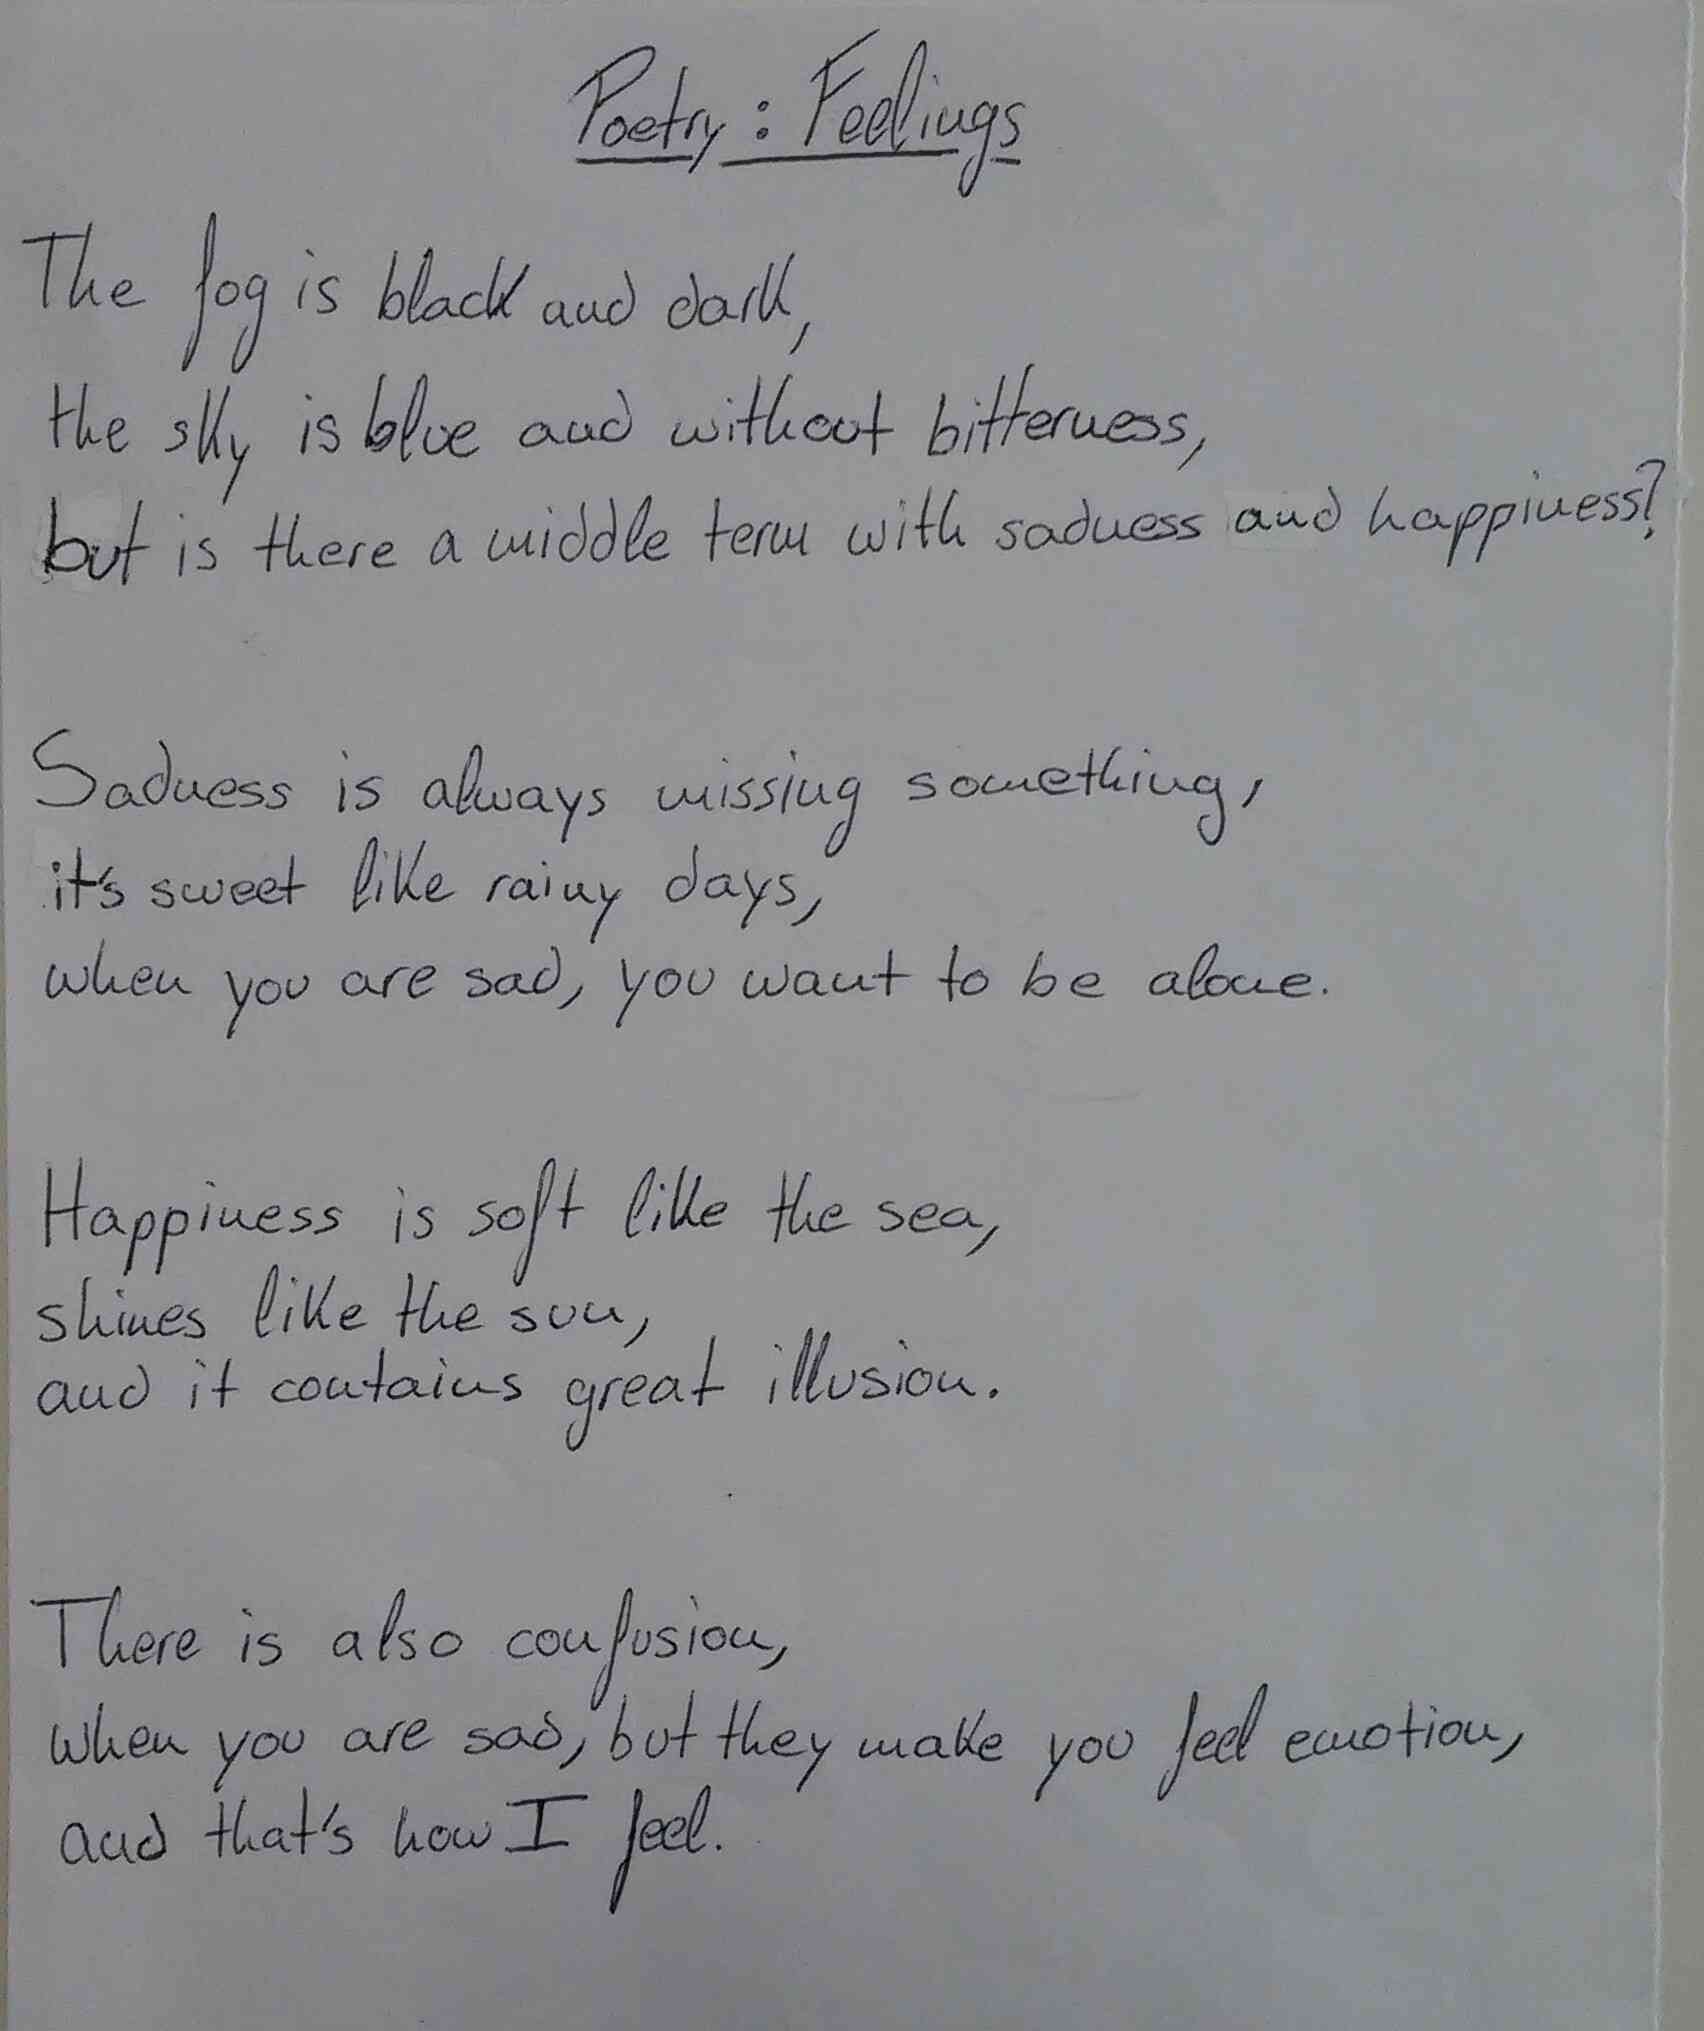 Poetry: Feelings
The fog is black and dark,
the sky is blue and without bitterness,
but is there a middle term with sadness and happiness?
Sadness is always missing something,
it's sweet like rainy days,
when you are sad, you want to be alone.
Happiness is soft like the sea,
shines like the sun,
and it contains great illusion.
There is also confusion,
when you are sad, but they make you feel emotion,
and that's how I feel.